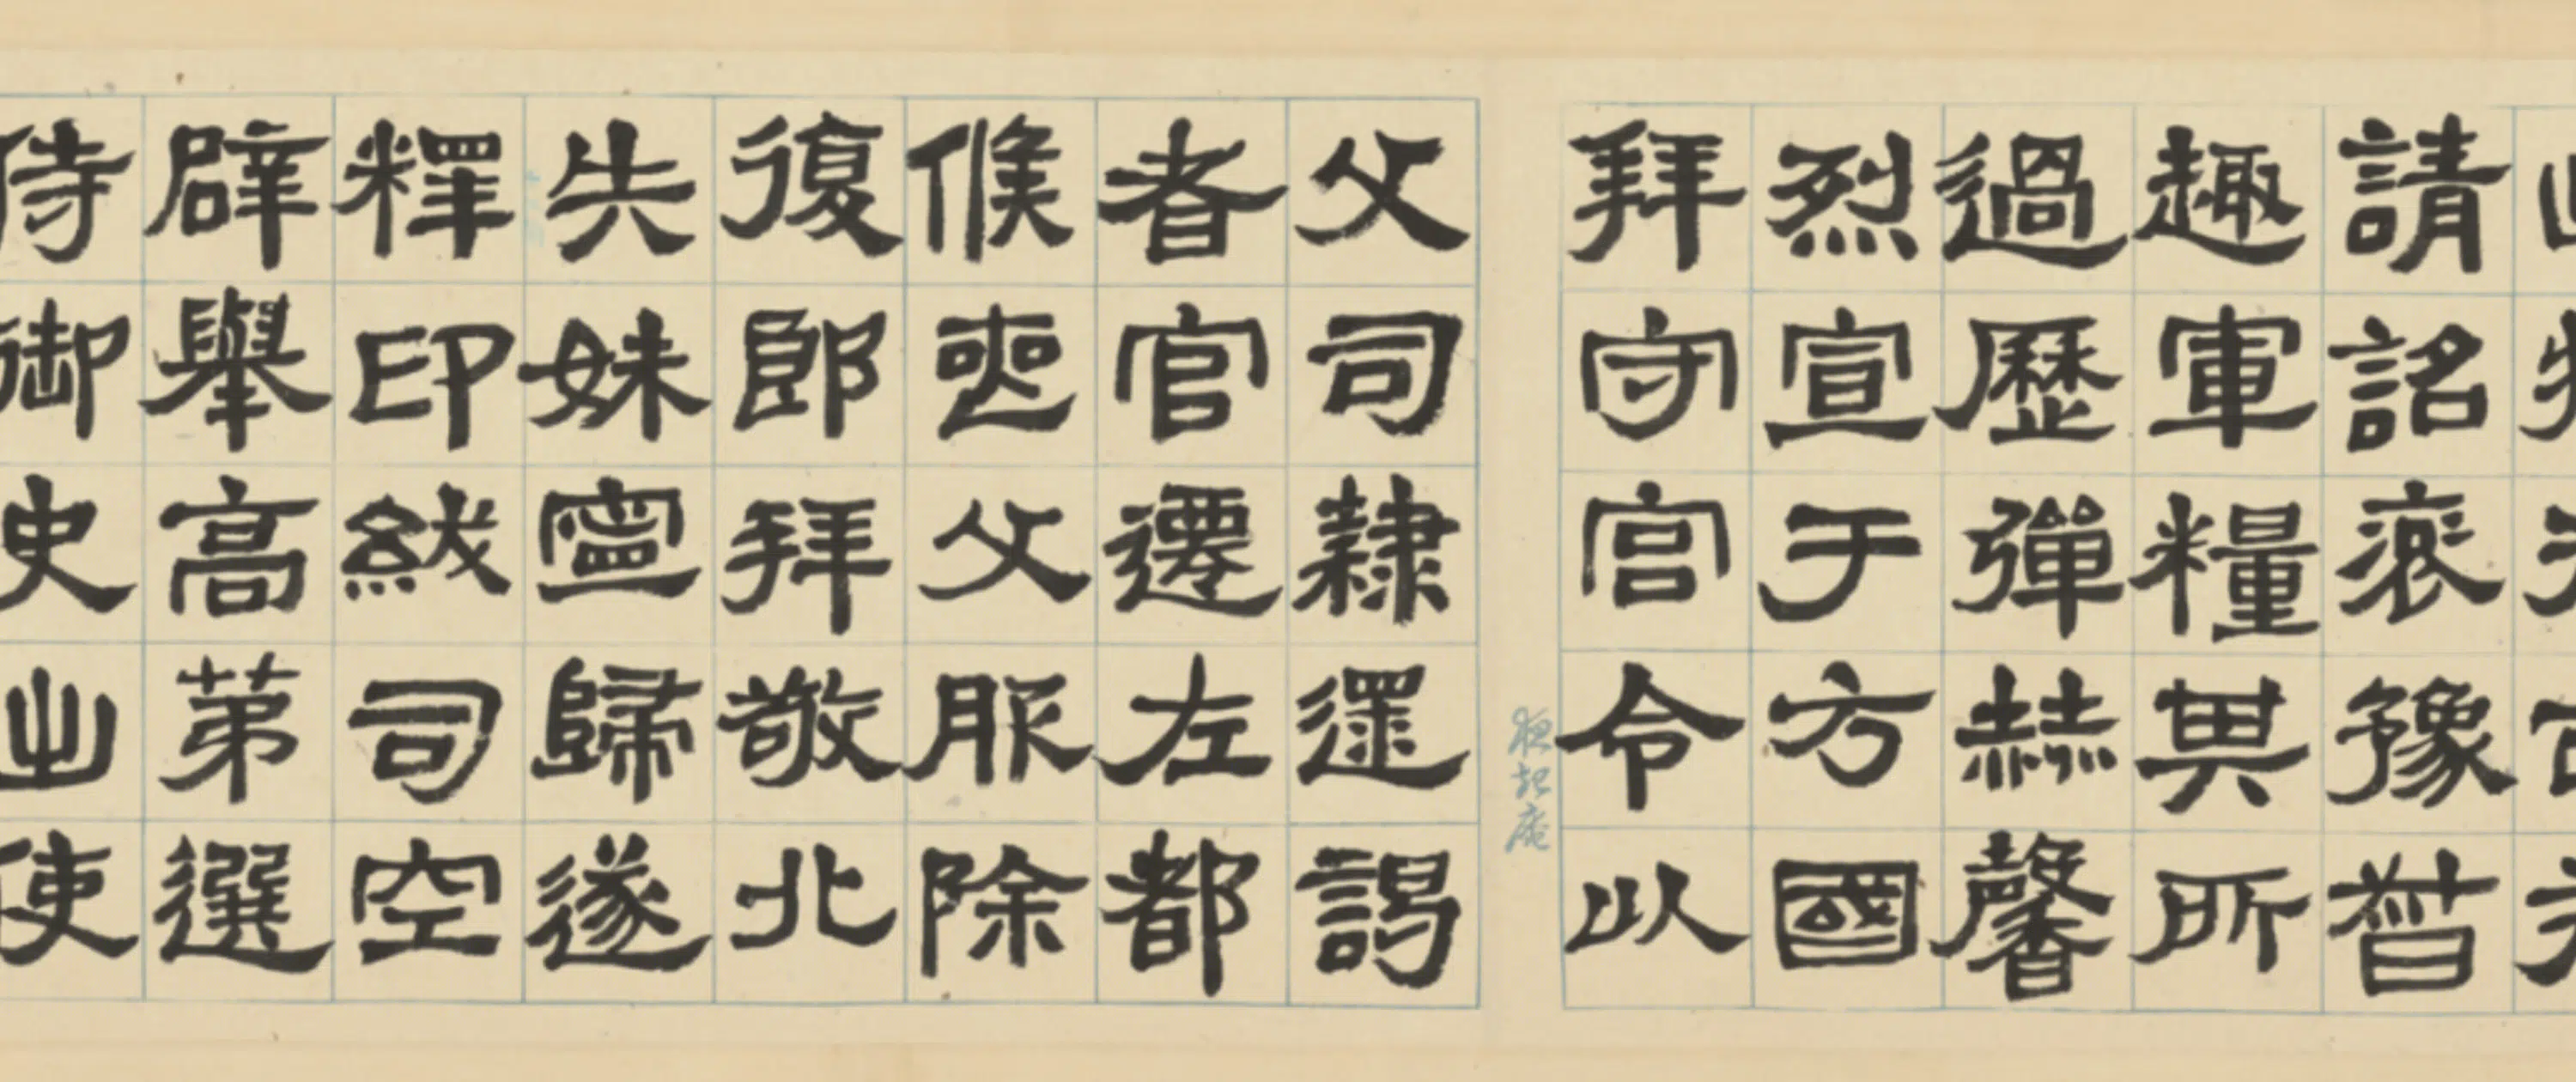 請詺裦豫
趣軍糧其所
過歷彈絓馨
烈宣于方國
拜守宮令以
夜起庵
父司隸還謁
者官遷左都
候喪父服除
復郎拜敬北
失妹寧歸遂
釋印紱司空
辟舉高第選
侍御史出使